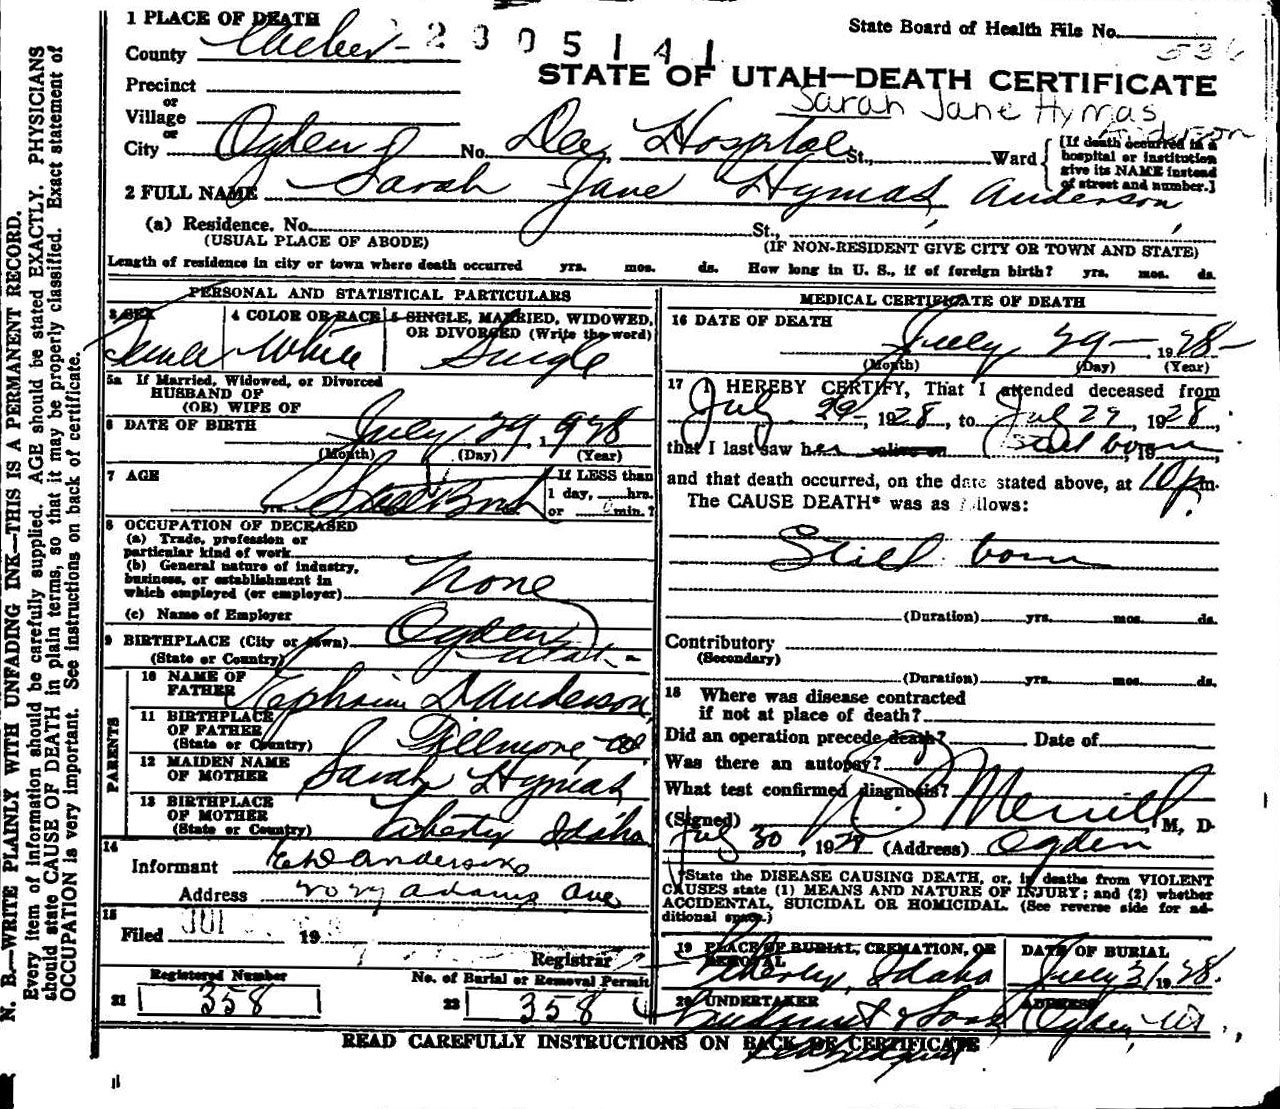 N. B.—WRITE PLAINLY WITH UNFADING INK—THIS IS A PERMANENT RECORD.
Every item of information should be carefully supplied. AGE should be stated EXACTLY. PHYSICIANS
should state CAUSE OF DEATH in plain terms, so that it may be properly classified. Exact statement of
OCCUPATION is very important. See instructions on back of certificate.
1 PLACE OF DEATH
State Board of Health File No.
536
County Weber
2805141
STATE OF UTAH—DEATH CERTIFICATE
Precinct
Sarah Jane Hymas
Anderson
or
Village
or
City Ogden No. Dee Hospital St., Ward
[If death occurred in a
hospital or institution
give its NAME instead
of street and number.]
2 FULL NAME Sarah Jane Hymas Anderson
(a) Residence. No. St.,
(USUAL PLACE OF ABODE) (IF NON-RESIDENT GIVE CITY OR TOWN AND STATE)
Length of residence in city or town where death occurred yrs. mos. ds. How long in U. S., if of foreign birth? yrs. mos. ds.
PERSONAL AND STATISTICAL PARTICULARS
3 SEX 4 COLOR OR RACE 5 SINGLE, MARRIED, WIDOWED,
OR DIVORCED (Write the word)
Female White Single
5a If Married, Widowed, or Divorced
HUSBAND OF
(OR) WIFE OF
6 DATE OF BIRTH July 29 1928
(Month) (Day) (Year)
7 AGE Still Born
If LESS than
1 day, hrs.
or min.?
8 OCCUPATION OF DECEASED
(a) Trade, profession or
particular kind of work
(b) General nature of industry,
business, or establishment in
which employed (or employer) None
(c) Name of Employer
9 BIRTHPLACE (City or town) Ogden
(State or Country) Utah
PARENTS
10 NAME OF
FATHER Ephraim D Anderson
11 BIRTHPLACE
OF FATHER
(State or Country) Fillmore, Ut
12 MAIDEN NAME
OF MOTHER Sarah Hymas
13 BIRTHPLACE
OF MOTHER
(State or Country) Liberty Idaho
14
Informant E D Anderson
Address Adams Ave
15
Filed JUL 19
Registrar
Registered Number No. of Burial or Removal Permit
21 358 22 358
MEDICAL CERTIFICATE OF DEATH
16 DATE OF DEATH
July 29 1928
(Month) (Day) (Year)
17 I HEREBY CERTIFY, That I attended deceased from
July 29, 1928, to July 29, 1928,
that I last saw her alive on (still born, 19
and that death occurred, on the date stated above, at 10 p.m.
The CAUSE DEATH* was as follows:
Still born
(Duration) yrs. mos. ds.
Contributory
(Secondary)
(Duration) yrs. mos. ds.
18 Where was disease contracted
if not at place of death?
Did an operation precede death? Date of
Was there an autopsy?
What test confirmed diagnosis?
(Signed) Merrill M, D-
July 30, 1928 (Address) Ogden
*State the DISEASE CAUSING DEATH, or, in deaths from VIOLENT
CAUSES state (1) MEANS AND NATURE OF INJURY; and (2) whether
ACCIDENTAL, SUICIDAL OR HOMICIDAL. (See reverse side for ad-
ditional space.)
19 PLACE OF BURIAL, CREMATION, OR
REMOVAL
Liberty, Idaho
DATE OF BURIAL
July 31 1928
20 UNDERTAKER
& Sons
ADDRESS
Ogden, Ut.
READ CAREFULLY INSTRUCTIONS ON BACK OF CERTIFICATE